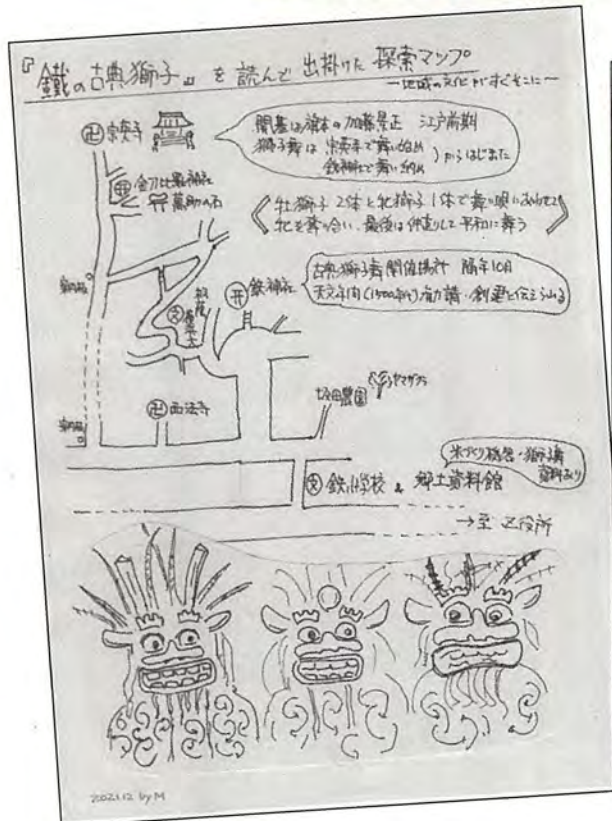 『鐵の古典獅子』を読んで出掛けた探索マップ
〜地域の文化がすぐそこに〜
卍 宗英寺
開基は旗本の加藤景正 江戸前期
獅子舞は 宗英寺で舞い始め
鉄神社で舞い納め
からはじまった
金刀比羅神社
萬助の石
《牡獅子2体と牝獅子1体で舞い唄にあわせて
牝を奪い合い、最後は仲直りして平和に舞う》
鉄神社
古典獅子舞開催場所 隔年10月
天文年間(1500年代)勧請・創建と伝えられる
卍 西法寺
ヤマザクラ
文 鉄小学校 & 郷土資料館
米づくり機器・獅子舞
資料あり
→至 区役所
2021.12 by M